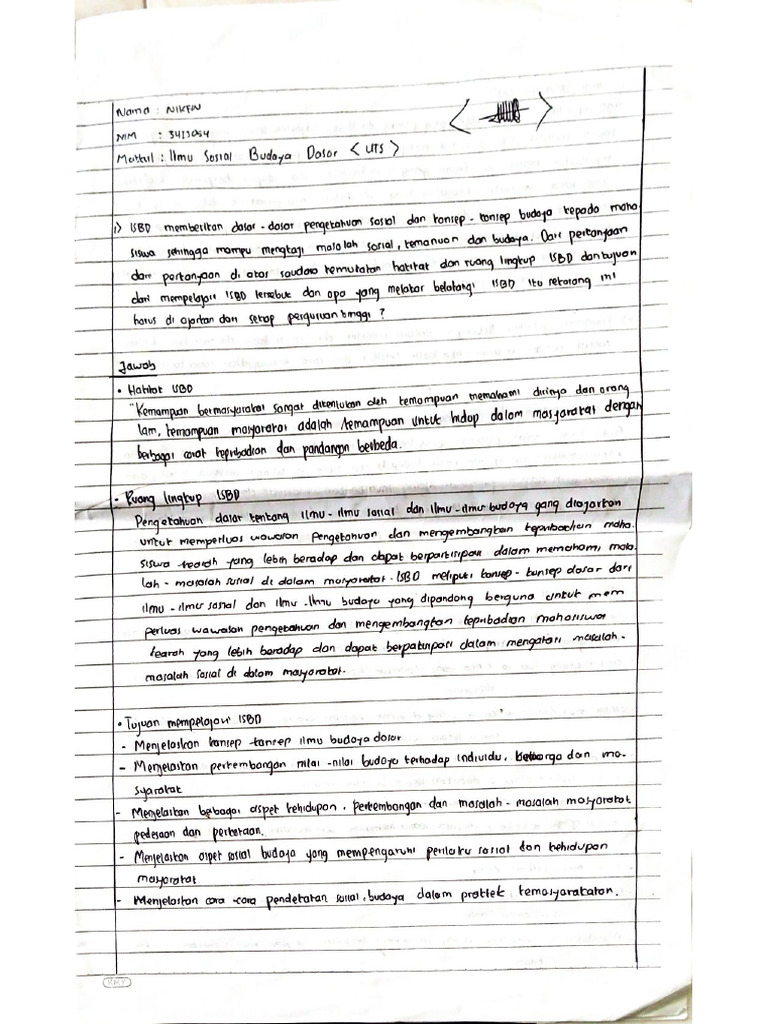 Nama : NIKEN
NIM : 3413054
Matkul : Ilmu Sosial Budaya Dasar <UTS>
1) ISBD memberikan dasar-dasar pengetahuan sosial dan konsep-konsep budaya kepada maha
siswa sehingga mampu mengkaji masalah sosial, kemanusan dan budaya. Dari pertanyaan
dari pertanyaan di atas saudara kemukakan hakikat dan ruang lingkup ISBD dan tujuan
dari mempelajari ISBD tersebut dan apa yang melatar belakangi ISBD itu sekarang ini
harus di ajarkan dari setiap perguruan tinggi ?
Jawab
• Hakikat ISBD
"Kemampuan bermasyarakat sangat ditentukan oleh kemampuan memahami dirinya dan orang
lain, kemampuan masyarakat adalah kemampuan untuk hidup dalam masyarakat dengan
berbagai corak kepribadian dan pandangan berbeda.
- Ruang lingkup ISBD
Pengetahuan dasar tentang ilmu-ilmu sosial dan ilmu-ilmu budaya yang diajarkan
untuk memperluas wawasan pengetahuan dan mengembangkan kepribadian maha
siswa kearah yang lebih beradap dan dapat berpartisipasi dalam memahami masa
lah-masalah sosial di dalam masyarakat. ISBD meliputi konsep-konsep dasar dari
ilmu-ilmu sosial dan ilmu-ilmu budaya yang dipandang berguna untuk mem
perluas wawasan pengetahuan dan mengembangkan kepribadian mahasiswa
kearah yang lebih beradap dan dapat berpatisipasi dalam mengatasi masalah-
masalah sosial di dalam masyarakat.
• Tujuan mempelajari ISBD
- Menjelaskan konsep-konsep ilmu budaya dasar
- Menjelaskan perkembangan nilai-nilai budaya terhadap individu, keluarga dan ma-
syarakat
- Menjelaskan berbagai aspek kehidupan, perkembangan dan masalah-masalah masyarakat
pedesaan dan perkotaan.
- Menjelaskan aspek sosial budaya yang mempengaruhi perilaku sosial dan kehidupan
masyarakat
- Menjelaskan cara-cara pendekatan sosial, budaya dalam praktek kemasyarakatan.